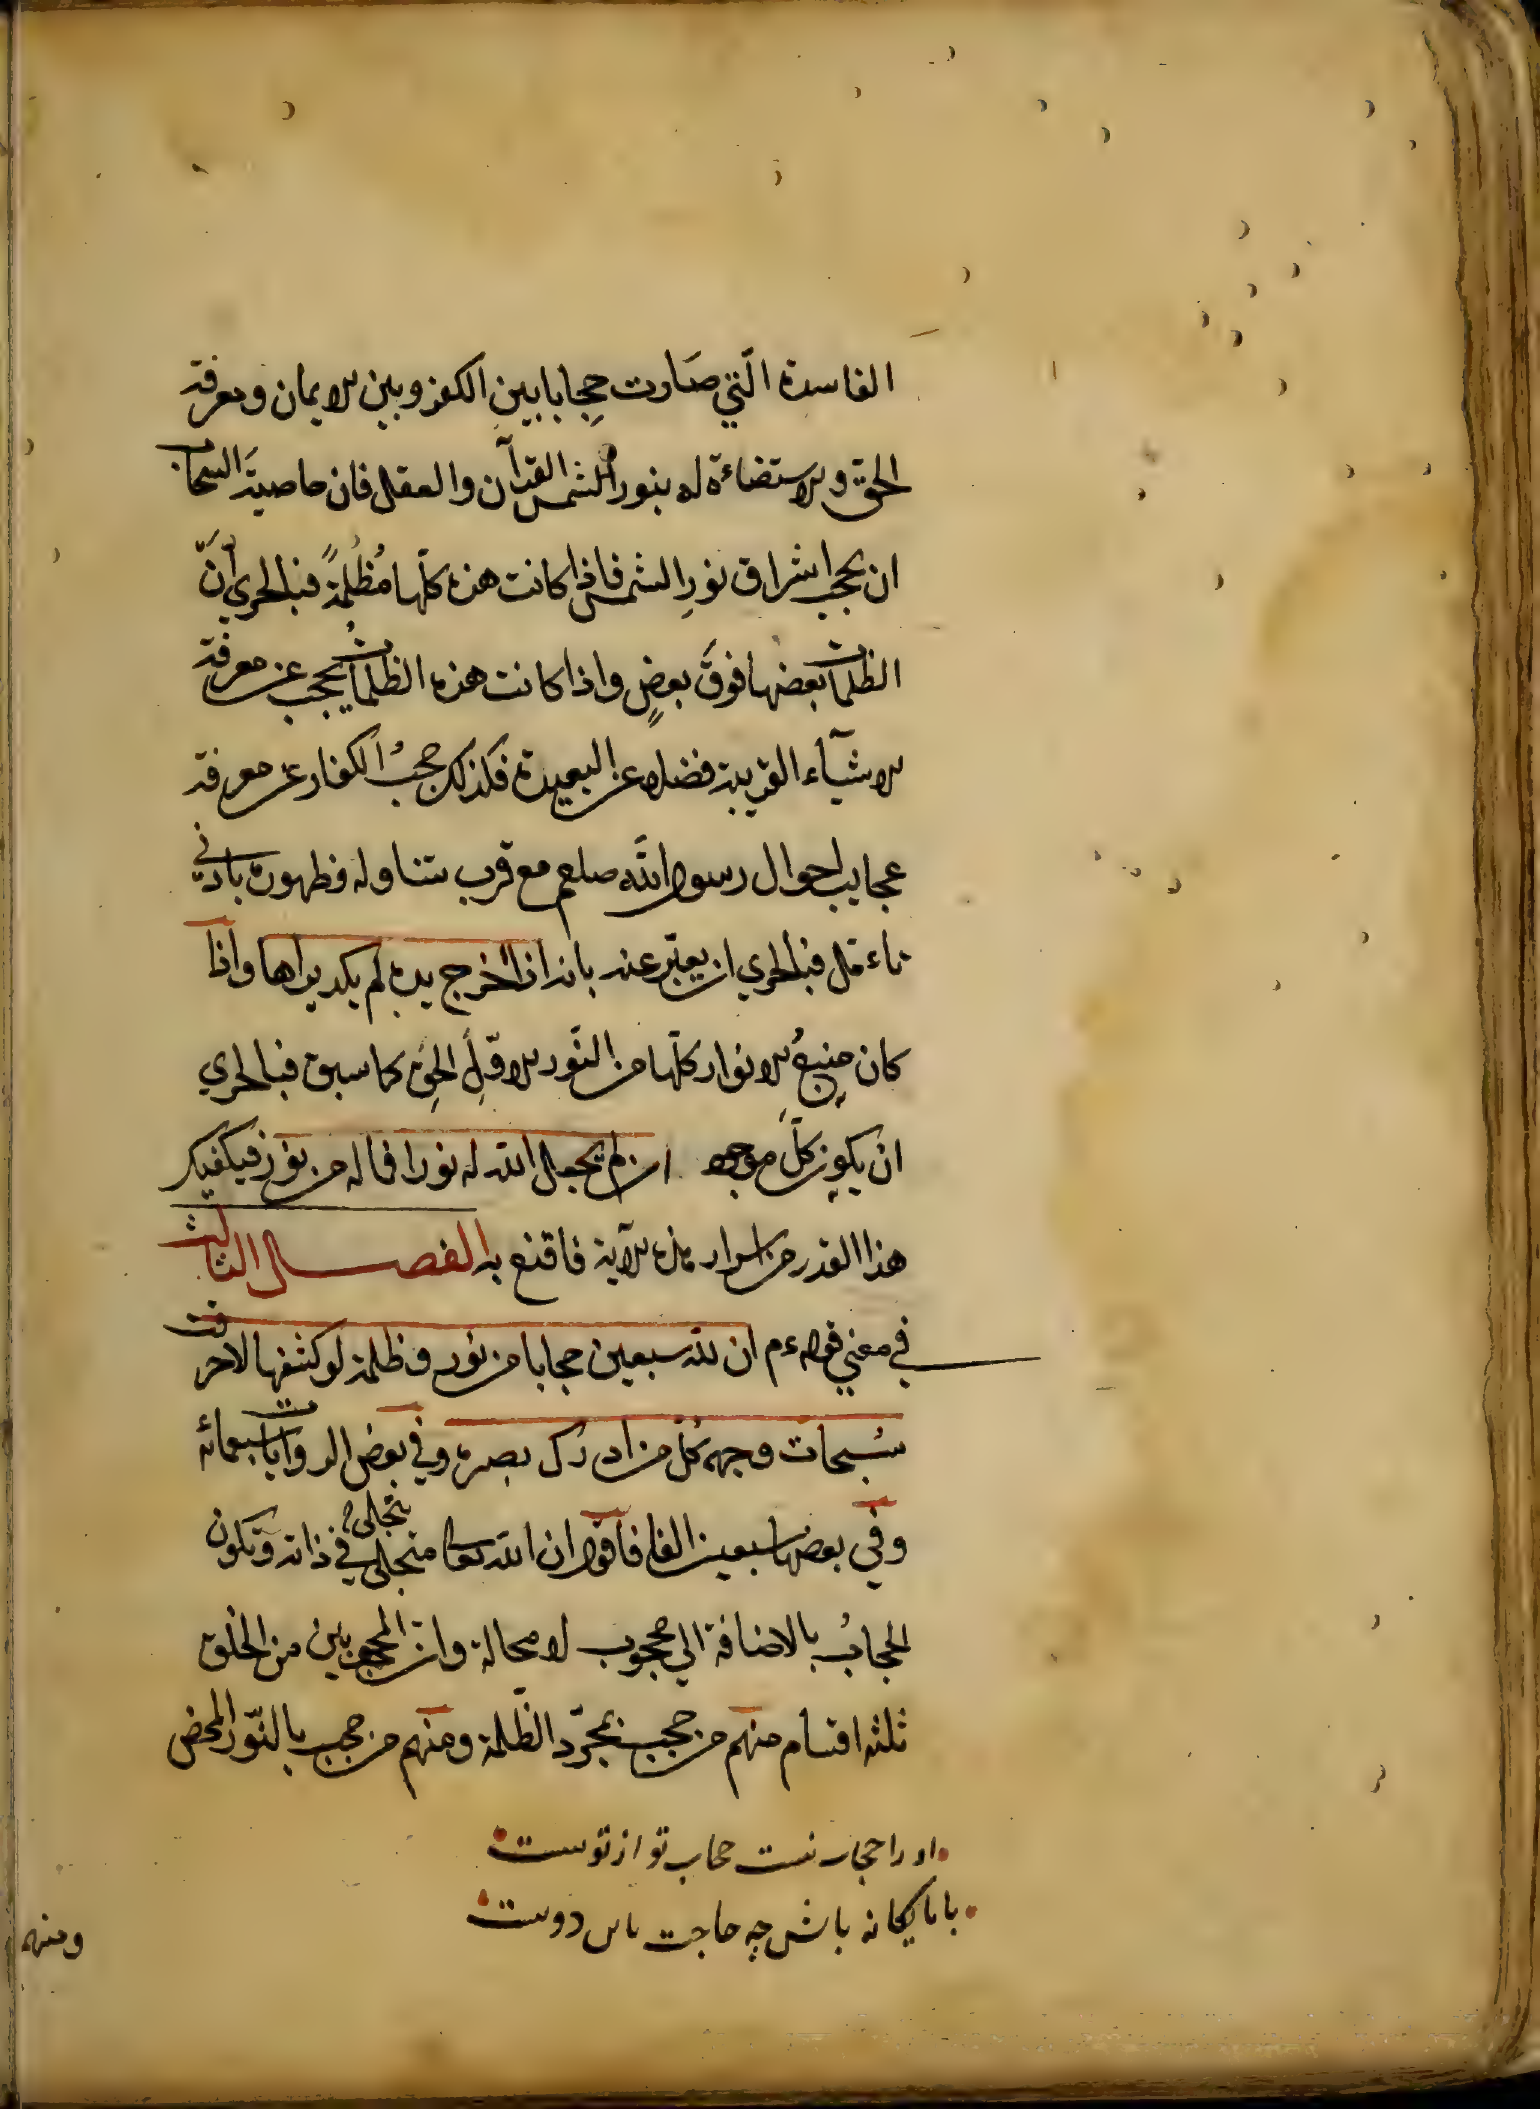 الفاسدة الّتي صَارت حِجابا بين الكفر وبين الايمان ومعرفة
الحق والاستضاءة له بنور الشمس القرآن والعقل فان خاصيةَ السحاب
ان يحجب اشراق نورِ الشمس فاذا كانت هذه كلّها مُظلمةً فبالحري أنّ
الظلمات بعضها فوقَ بعضٍ واذا كانت هذه الظلمات يحجب عن معرفة
الاشيآء القريبة فضلا عن البعيدة فكذلك حجب الكفار عن معرفة
عجايب احوال رسول الله صلعم مع قرب متناوله وظهوره بادني
تاءمل فبالحري ان يعبّر عنه بانه اذا اخرج يده لم يكد يراها واذا
كان منبعُ الانوار كلّها من النّور الاوّلِ الحقِ كما سبق فبالحري
ان يكون كلّ موحد ان لم يجعل الله له نورا فما له من نور فيكفيك
هذا القدر من اسرار هذه الآية فاقنع به الفصل الثالث
في معني قوله ءم ان لله سبعين حجابا من نور وظلمة لو كشفها لاحرقت
سُبحات وجهه كلّ من ادرك بصره وفي بعض الروايات سبعمائه
وفي بعضها سبعين الفا فاقول ان الله تعالى متجلى في ذاته وتكون
يتجلى
الحجابُ بالاضافة الي محجوب لا محالة وانّ المحجوبين من الخلق
ثلثه اقسام منهم من حجب بمجرّد الظّلمة ومنهم من حجب بالنّور المحض
او را حجاب نست حجاب تو از توست
با ما يكانه باش چه حاجت دوست
ومنهم